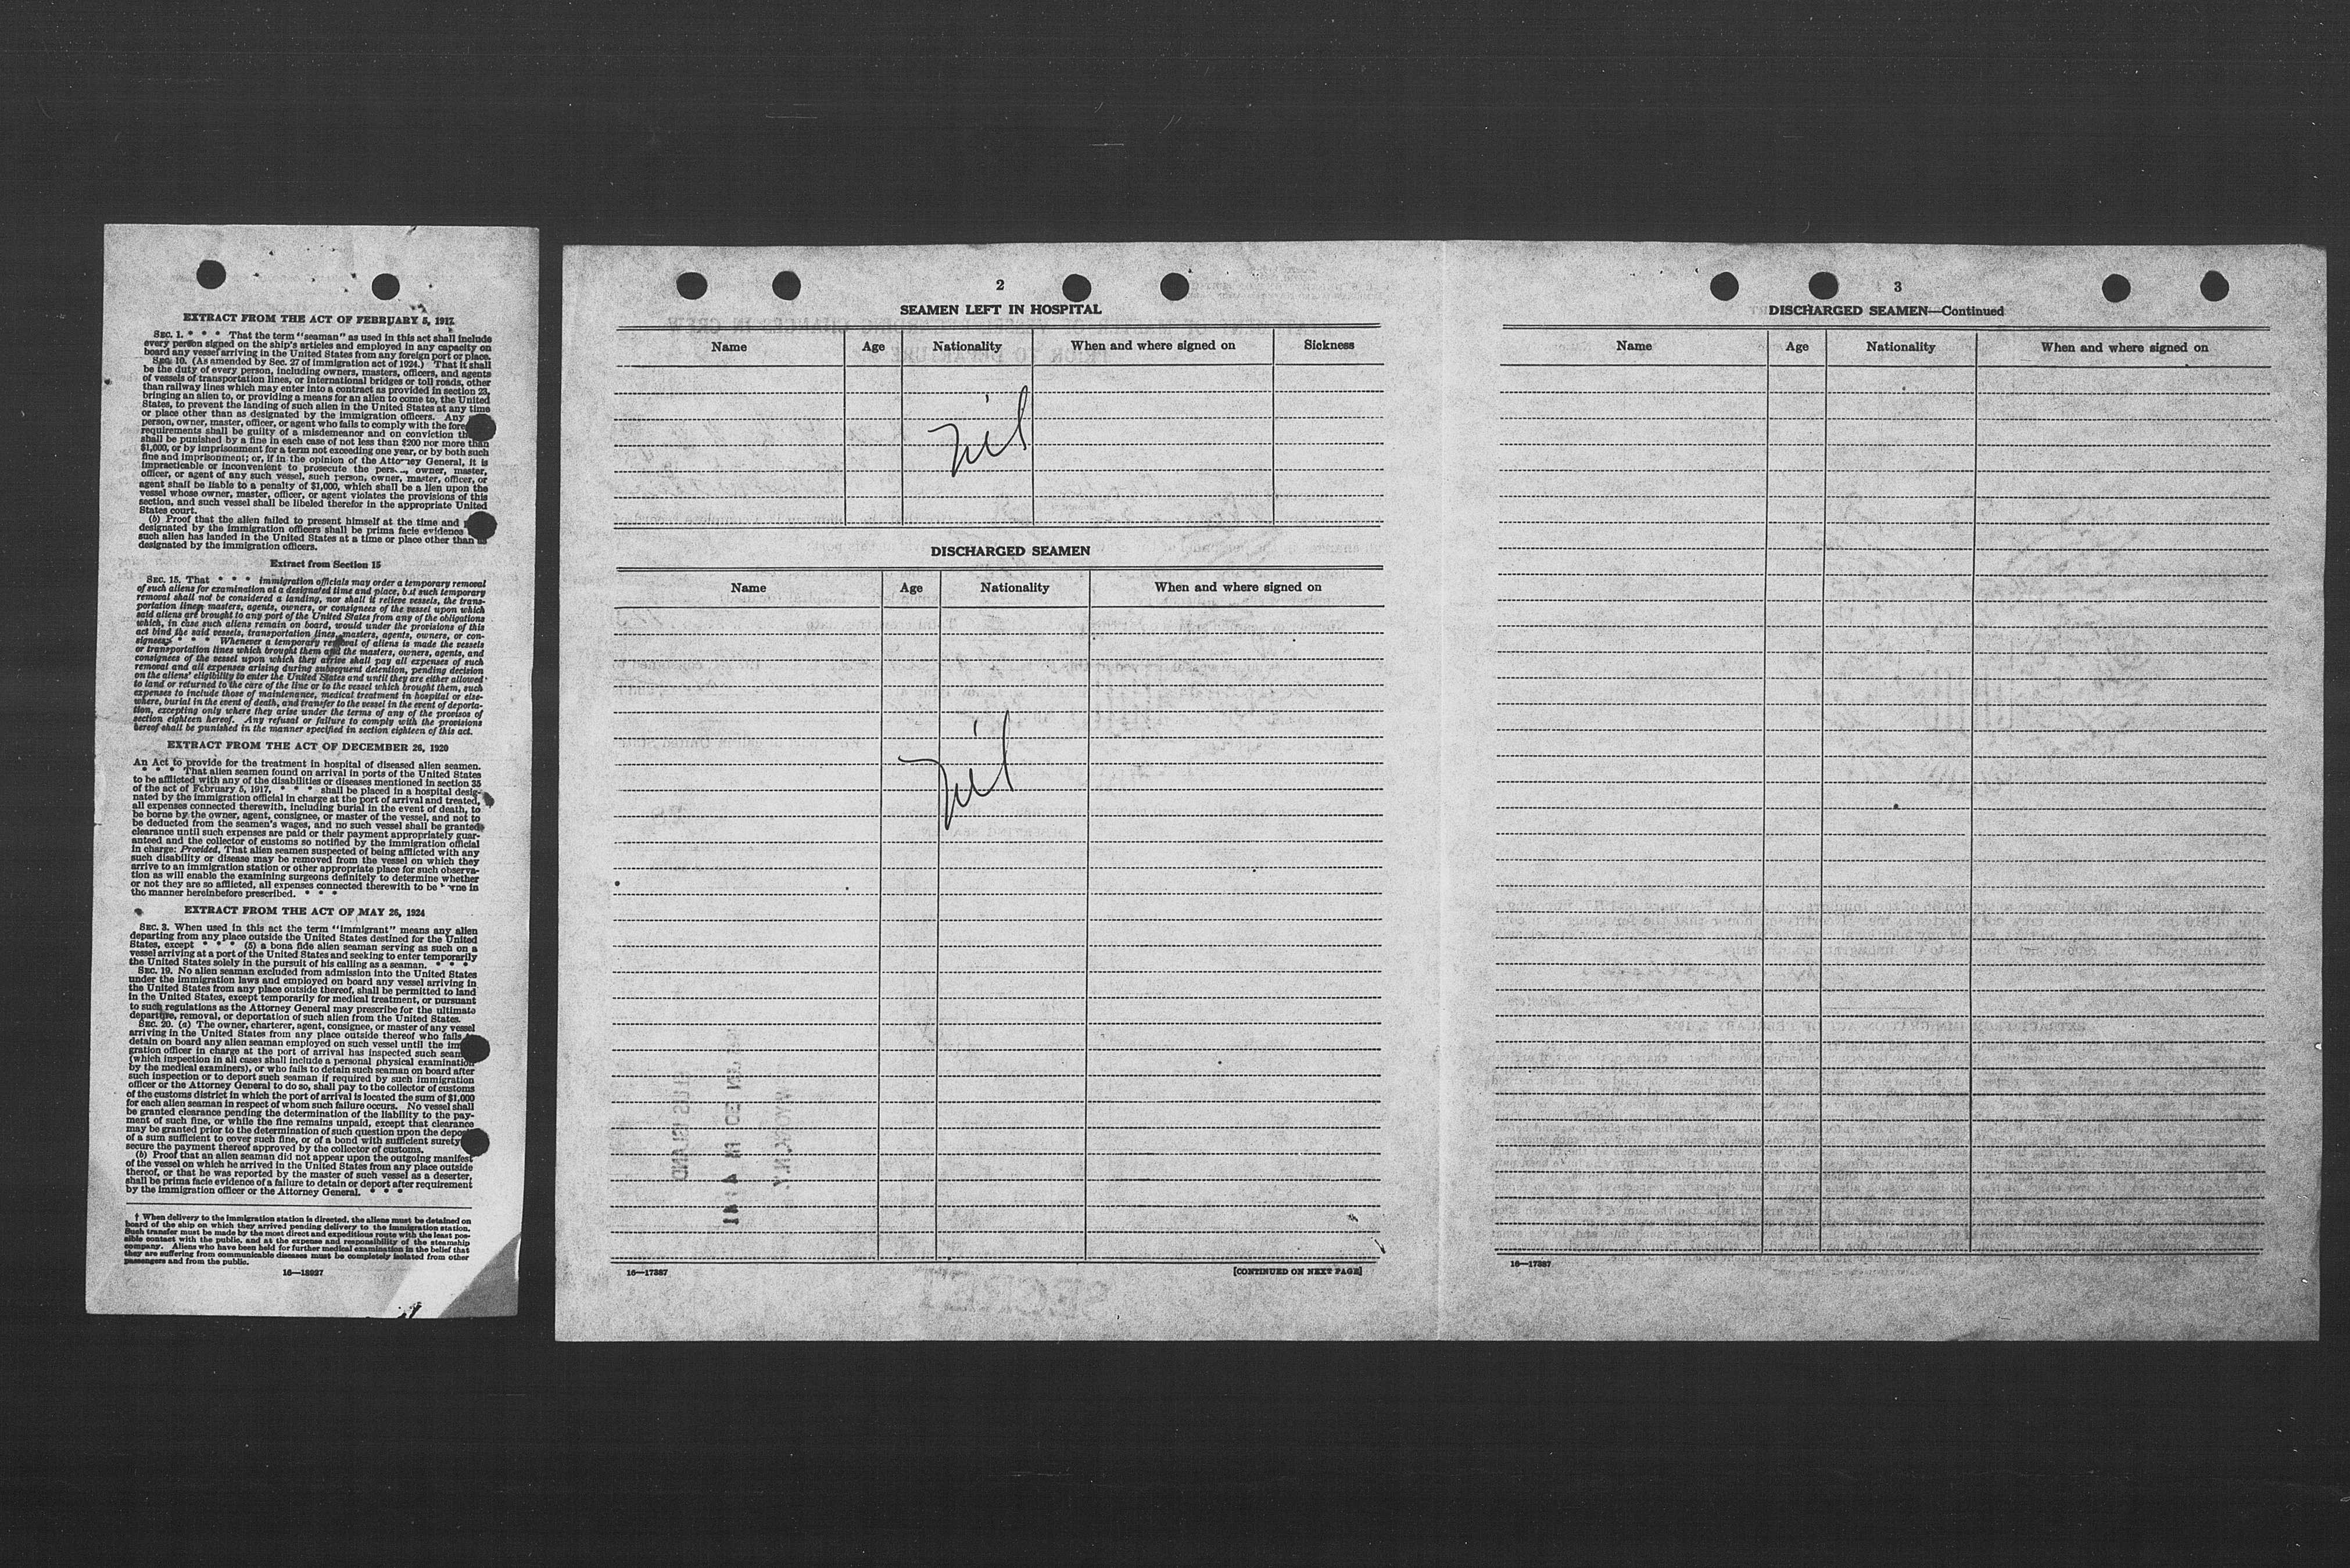 EXTRACT FROM THE ACT OF FEBRUARY 5, 1917.
SEC. 1. * * * That the term "seaman" as used in this act shall include
every person signed on the ship's articles and employed in any capacity on
board any vessel arriving in the United States from any foreign port or place.
SEC. 10. (As amended by Sec. 27 of immigration act of 1924.) That it shall
be the duty of every person, including owners, masters, officers, and agents
of vessels of transportation lines, or international bridges or toll roads, other
than railway lines which may enter into a contract as provided in section 23,
bringing an alien to, or providing a means for an alien to come to, the United
States, to prevent the landing of such alien in the United States at any time
or place other than as designated by the immigration officers. Any
person, owner, master, officer, or agent who fails to comply with the fore
requirements shall be guilty of a misdemeanor and on conviction th
shall be punished by a fine in each case of not less than $200 nor more than
$1,000, or by imprisonment for a term not exceeding one year, or by both such
fine and imprisonment; or, if in the opinion of the Attorney General, it is
impracticable or inconvenient to prosecute the pers , owner, master,
officer, or agent of any such vessel, such person, owner, master, officer, or
agent shall be liable to a penalty of $1,000, which shall be a lien upon the
vessel whose owner, master, officer, or agent violates the provisions of this
section, and such vessel shall be libeled therefor in the appropriate United
States court.
(b) Proof that the alien failed to present himself at the time and
designated by the immigration officers shall be prima facie evidence
such alien has landed in the United States at a time or place other than as
designated by the immigration officers.
Extract from Section 15
SEC. 15. That * * * immigration officials may order a temporary removal
of such aliens for examination at a designated time and place, but such temporary
removal shall not be considered a landing, nor shall it relieve vessels, the trans-
portation lines, masters, agents, owners, or consignees of the vessel upon which
said aliens are brought to any port of the United States from any of the obligations
which, in case such aliens remain on board, would under the provisions of this
act bind the said vessels, transportation lines, masters, agents, owners, or con-
signees: * * * Whenever a temporary removal of aliens is made the vessels
or transportation lines which brought them and the masters, owners, agents, and
consignees of the vessel upon which they arrive shall pay all expenses of such
removal and all expenses arising during subsequent detention, pending decision
on the aliens' eligibility to enter the United States and until they are either allowed
to land or returned to the care of the line or to the vessel which brought them, such
expenses to include those of maintenance, medical treatment in hospital or else-
where, burial in the event of death, and transfer to the vessel in the event of deporta-
tion, excepting only where they arise under the terms of any of the provisos of
section eighteen hereof. Any refusal or failure to comply with the provisions
hereof shall be punished in the manner specified in section eighteen of this act.
EXTRACT FROM THE ACT OF DECEMBER 26, 1920
An Act to provide for the treatment in hospital of diseased alien seamen.
* * * That alien seamen found on arrival in ports of the United States
to be afflicted with any of the disabilities or diseases mentioned in section 35
of the act of February 5, 1917, * * * shall be placed in a hospital desig-
nated by the immigration official in charge at the port of arrival and treated,
all expenses connected therewith, including burial in the event of death, to
be borne by the owner, agent, consignee, or master of the vessel, and not to
be deducted from the seamen's wages, and no such vessel shall be granted
clearance until such expenses are paid or their payment appropriately guar-
anteed and the collector of customs so notified by the immigration official
in charge: Provided, That alien seamen suspected of being afflicted with any
such disability or disease may be removed from the vessel on which they
arrive to an immigration station or other appropriate place for such observa-
tion as will enable the examining surgeons definitely to determine whether
or not they are so afflicted, all expenses connected therewith to be borne in
the manner hereinbefore prescribed. * * *
EXTRACT FROM THE ACT OF MAY 26, 1924
SEC. 3. When used in this act the term "immigrant" means any alien
departing from any place outside the United States destined for the United
States, except * * * (5) a bona fide alien seaman serving as such on a
vessel arriving at a port of the United States and seeking to enter temporarily
the United States solely in the pursuit of his calling as a seaman. * * *
SEC. 19. No alien seaman excluded from admission into the United States
under the immigration laws and employed on board any vessel arriving in
the United States from any place outside thereof, shall be permitted to land
in the United States, except temporarily for medical treatment, or pursuant
to such regulations as the Attorney General may prescribe for the ultimate
departure, removal, or deportation of such alien from the United States.
SEC. 20. (a) The owner, charterer, agent, consignee, or master of any vessel
arriving in the United States from any place outside thereof who fails
detain on board any alien seaman employed on such vessel until the im
gration officer in charge at the port of arrival has inspected such seam
(which inspection in all cases shall include a personal physical examination
by the medical examiners), or who fails to detain such seaman on board after
such inspection or to deport such seaman if required by such immigration
officer or the Attorney General to do so, shall pay to the collector of customs
of the customs district in which the port of arrival is located the sum of $1,000
for each alien seaman in respect of whom such failure occurs. No vessel shall
be granted clearance pending the determination of the liability to the pay-
ment of such fine, or while the fine remains unpaid, except that clearance
may be granted prior to the determination of such question upon the depos
of a sum sufficient to cover such fine, or of a bond with sufficient surety
secure the payment thereof approved by the collector of customs.
(b) Proof that an alien seaman did not appear upon the outgoing manifest
of the vessel on which he arrived in the United States from any place outside
thereof, or that he was reported by the master of such vessel as a deserter,
shall be prima facie evidence of a failure to detain or deport after requirement
by the immigration officer or the Attorney General. * * *
† When delivery to the immigration station is directed, the aliens must be detained on
board of the ship on which they arrived pending delivery to the immigration station.
Such transfer must be made by the most direct and expeditious route with the least pos-
sible contact with the public, and at the expense and responsibility of the steamship
company. Aliens who have been held for further medical examination in the belief that
they are suffering from communicable diseases must be completely isolated from other
passengers and from the public.
16—18927
2
SEAMEN LEFT IN HOSPITAL
Name Age Nationality When and where signed on Sickness
Nil
DISCHARGED SEAMEN
Name Age Nationality When and where signed on
Nil
16—17387 [CONTINUED ON NEXT PAGE]
3
DISCHARGED SEAMEN—Continued
Name Age Nationality When and where signed on
16—17387